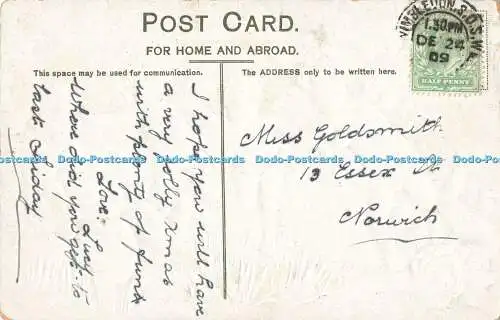 POST CARD.
FOR HOME AND ABROAD.
This space may be used for communication.
The ADDRESS only to be written here.
WIMBLEDON S.O. S.W.
1.30PM
DE 24
09
HALF PENNY
I hope you will have
a very jolly Xmas
with plenty of fun
Love. Lucy
Where did you get to
last Friday
Miss Goldsmith
13 Essex St
Norwich
Dodo Postcards Dodo Postcards Dodo Postcards Dodo Postcards